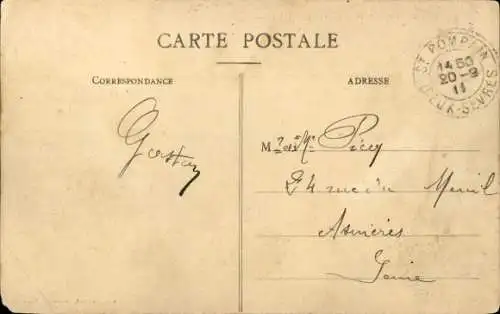 CARTE POSTALE
CORRESPONDANCE
ADRESSE
ST POMPAIN
14 50
20-9
11
DEUX-SÈVRES
Gaston
M
Pécq
24 rue du Menil
Asnieres
Seine